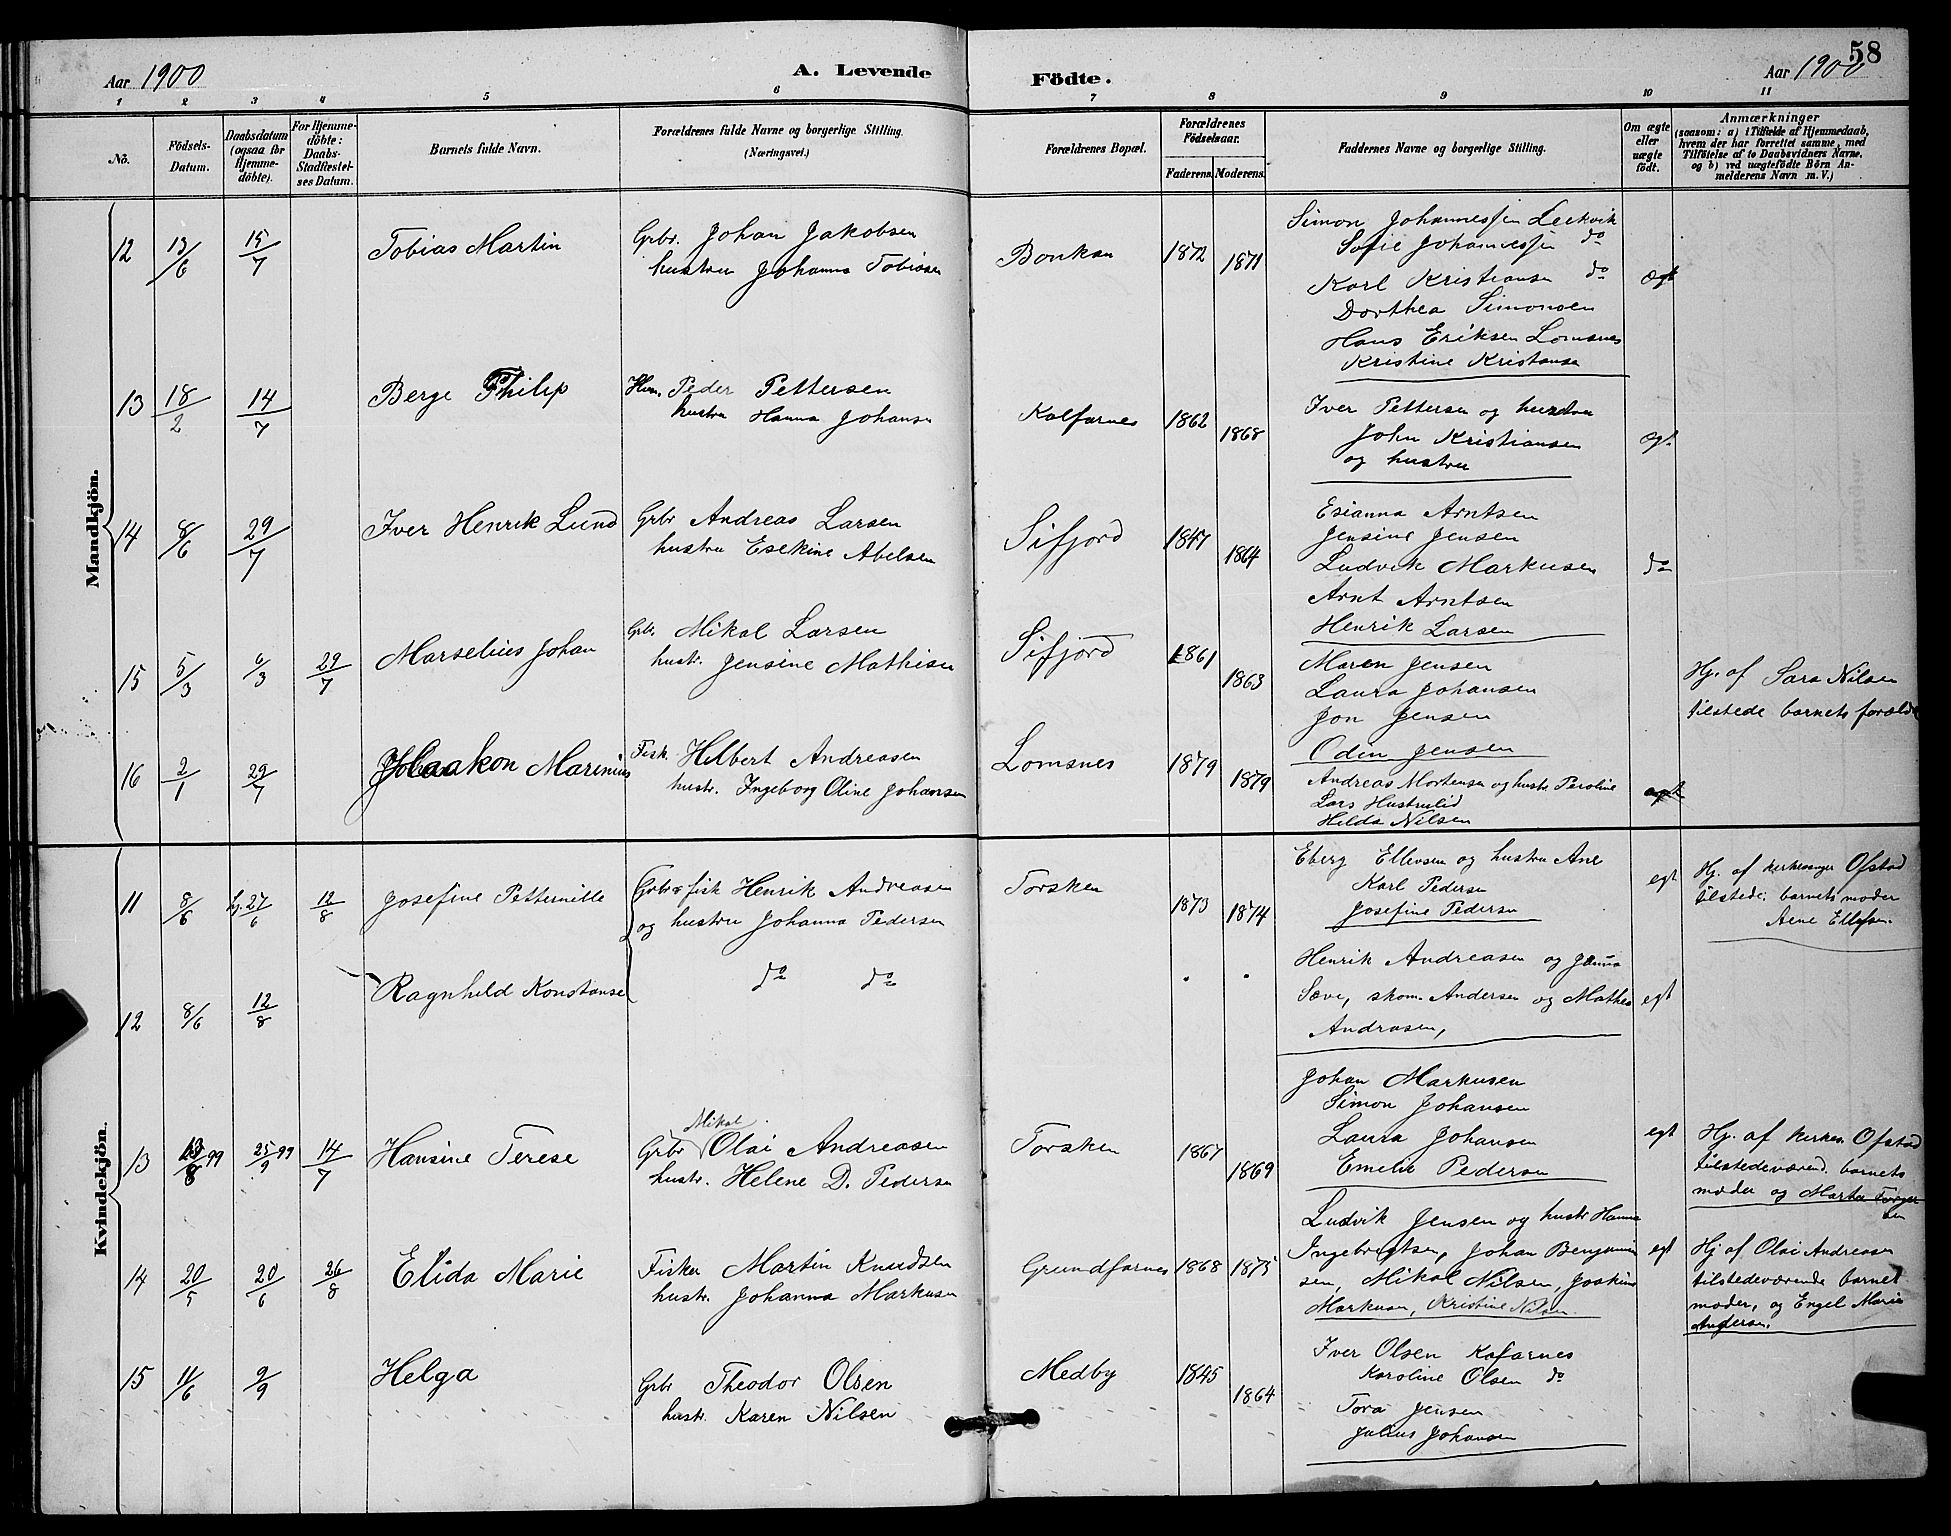 58
Aar 1900
A. Levende
Födte.
Aar 1900
1 2 3 4 5 6 7 8 9 10 11
No.
Födsels-
Datum.
Daabsdatum
(ogsaa for
Hjemme-
döbte).
For Hjemme-
döbte:
Daabs-
Stadfæstel-
ses Datum.
Barnets fulde Navn.
Forældrenes fulde Navne og borgerlige Stilling.
(Næringsvei.)
Forældrenes Bopæl.
Forældrenes
Födselsaar.
Faderens.
Moderens.
Faddernes Navne og borgerlige Stilling.
Om ægte
eller
uægte
födt.
Anmærkninger
(saasom: a) i Tilfælde af Hjemmedaab,
hvem der har forrettet samme, med
Tilföielse af to Daabsvidners Navne,
og b) ved uægtefödte Börn An-
melderens Navn m. V.)
Mandkjön.
12 13/6 15/7 Tobias Martin
Grbr. Johan Jakobsen
hustru Johanna Tobiasen
Bonkan 1872 1871
Simon Johannessen Leikvik
Sofie Johannessen do
Karl Kristiansen do
Dorthea Simonsen
Hans Eriksen Lomsnes
Kristine Kristiansen
Ægt
13 18/2 14/7 Berge Philip
Hm. Peder Pettersen
hustru Hanna Johansen
Kalfarnes 1862 1868
Iver Pettersen og hustru
John Kristiansen
og hustru
Ægt
14 8/6 29/7 Iver Henrik Lund
Grbr Andreas Larsen
hustru Esekine Abelsen
Sifjord 1847 1864
Esianna Arntsen
Jensine Jensen
Ludvik Markusen
Arnt Arntsen
Henrik Larsen
do
15 5/3 6/3 29/7 Marselius Johan
Grbr. Mikal Larsen
hustr. Jensine Mathisen
Sifjord 1861 1863
Maren Jensen
Laura Johansen
Jon Jensen
Odin Jensen
Hj. af Sara Nilsen
tilstede barnets foræld
16 2/1 29/7 Haakon Marinius
Fisk. Hilbert Andreasen
hustr. Ingeborg Oline Johansen
Lomsnes 1879 1879
Andreas Mortensen og hustr Peroline
Lars Hustrulid
Hilda Nilsen
ægt
Kvindekjön.
11 8/6 hj. 27/6 12/8 Josefine Petternille
Grbr & fisk Henrik Andreasen
og hustru Johanna Pedersen
Torsken 1873 1874
Eberg Ellevsen og hustru Ane
Karl Pedersen
Josefine Pedersen
egt
Hj. af kirkesanger Ofstad
tilstede: barnets moder
Aene Ellefsen.
12 8/6 12/8 Ragnhild Konstanse
do do
Henrik Andreasen og Janna
Sæve, skom. Andersen og Mathea
Andrasen,
egt
13 13/8 99 25/9 99 14/7 Hansine Terese
Mikal
Grbr Olai Andreasen
hustr. Helene D. Pedersen
Torsken 1867 1869
Johan Markusen
Simon Johansen
Laura Johansen
Emelie Pedersen
egt
Hj. af kirkes. Ofstad
tilstedeværend. barnets
moder og Marta Torger
sen
14 20/5 20/6 26/8 Elida Marie
Fisker Martin Knudsen
hustr. Johanna Markusen
Grundfarnes 1868 1875
Ludvik Jensen og hustr Hanna
Ingebrigtsen, Johan Benjamin
sen, Mikal Nilsen, Joakim
Markusen, Kristine Nilsen
egt
Hj af Olai Andreasen
tilstedeværende barnet
moder, og Engel Marie
Andersen.
15 11/6 9/9 Helga
Grbr Theodor Olsen
hustr. Karen Nilsen
Medby 1845 1864
Iver Olsen Kafarnes
Karoline Olsen do
Tora Jensen
Julius Johansen